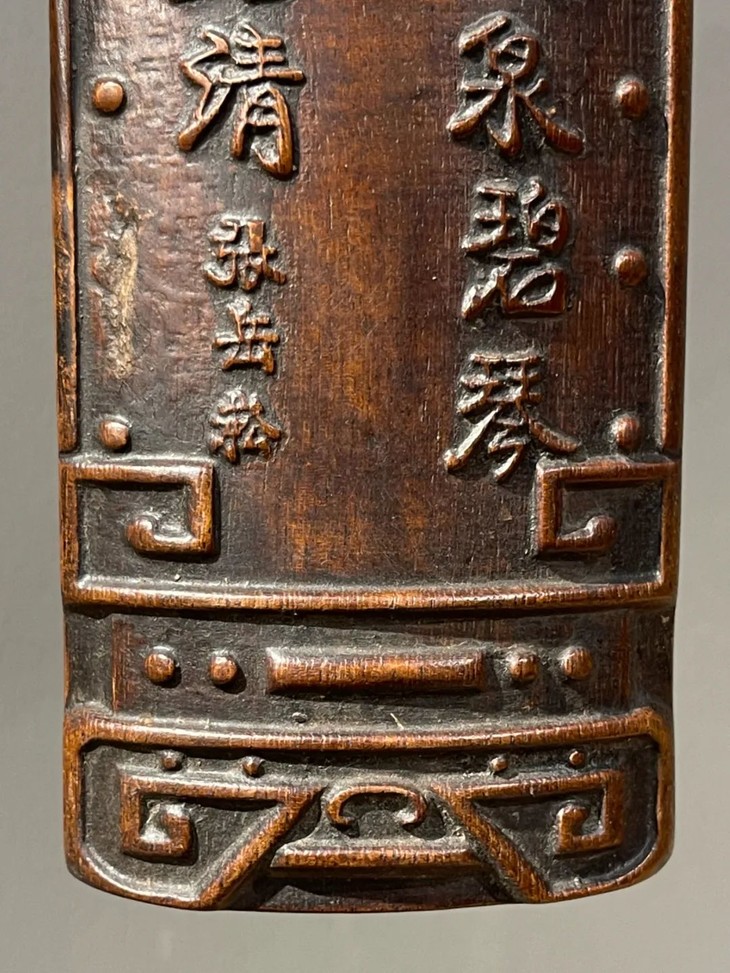 泉碧琴
清
張岳崧